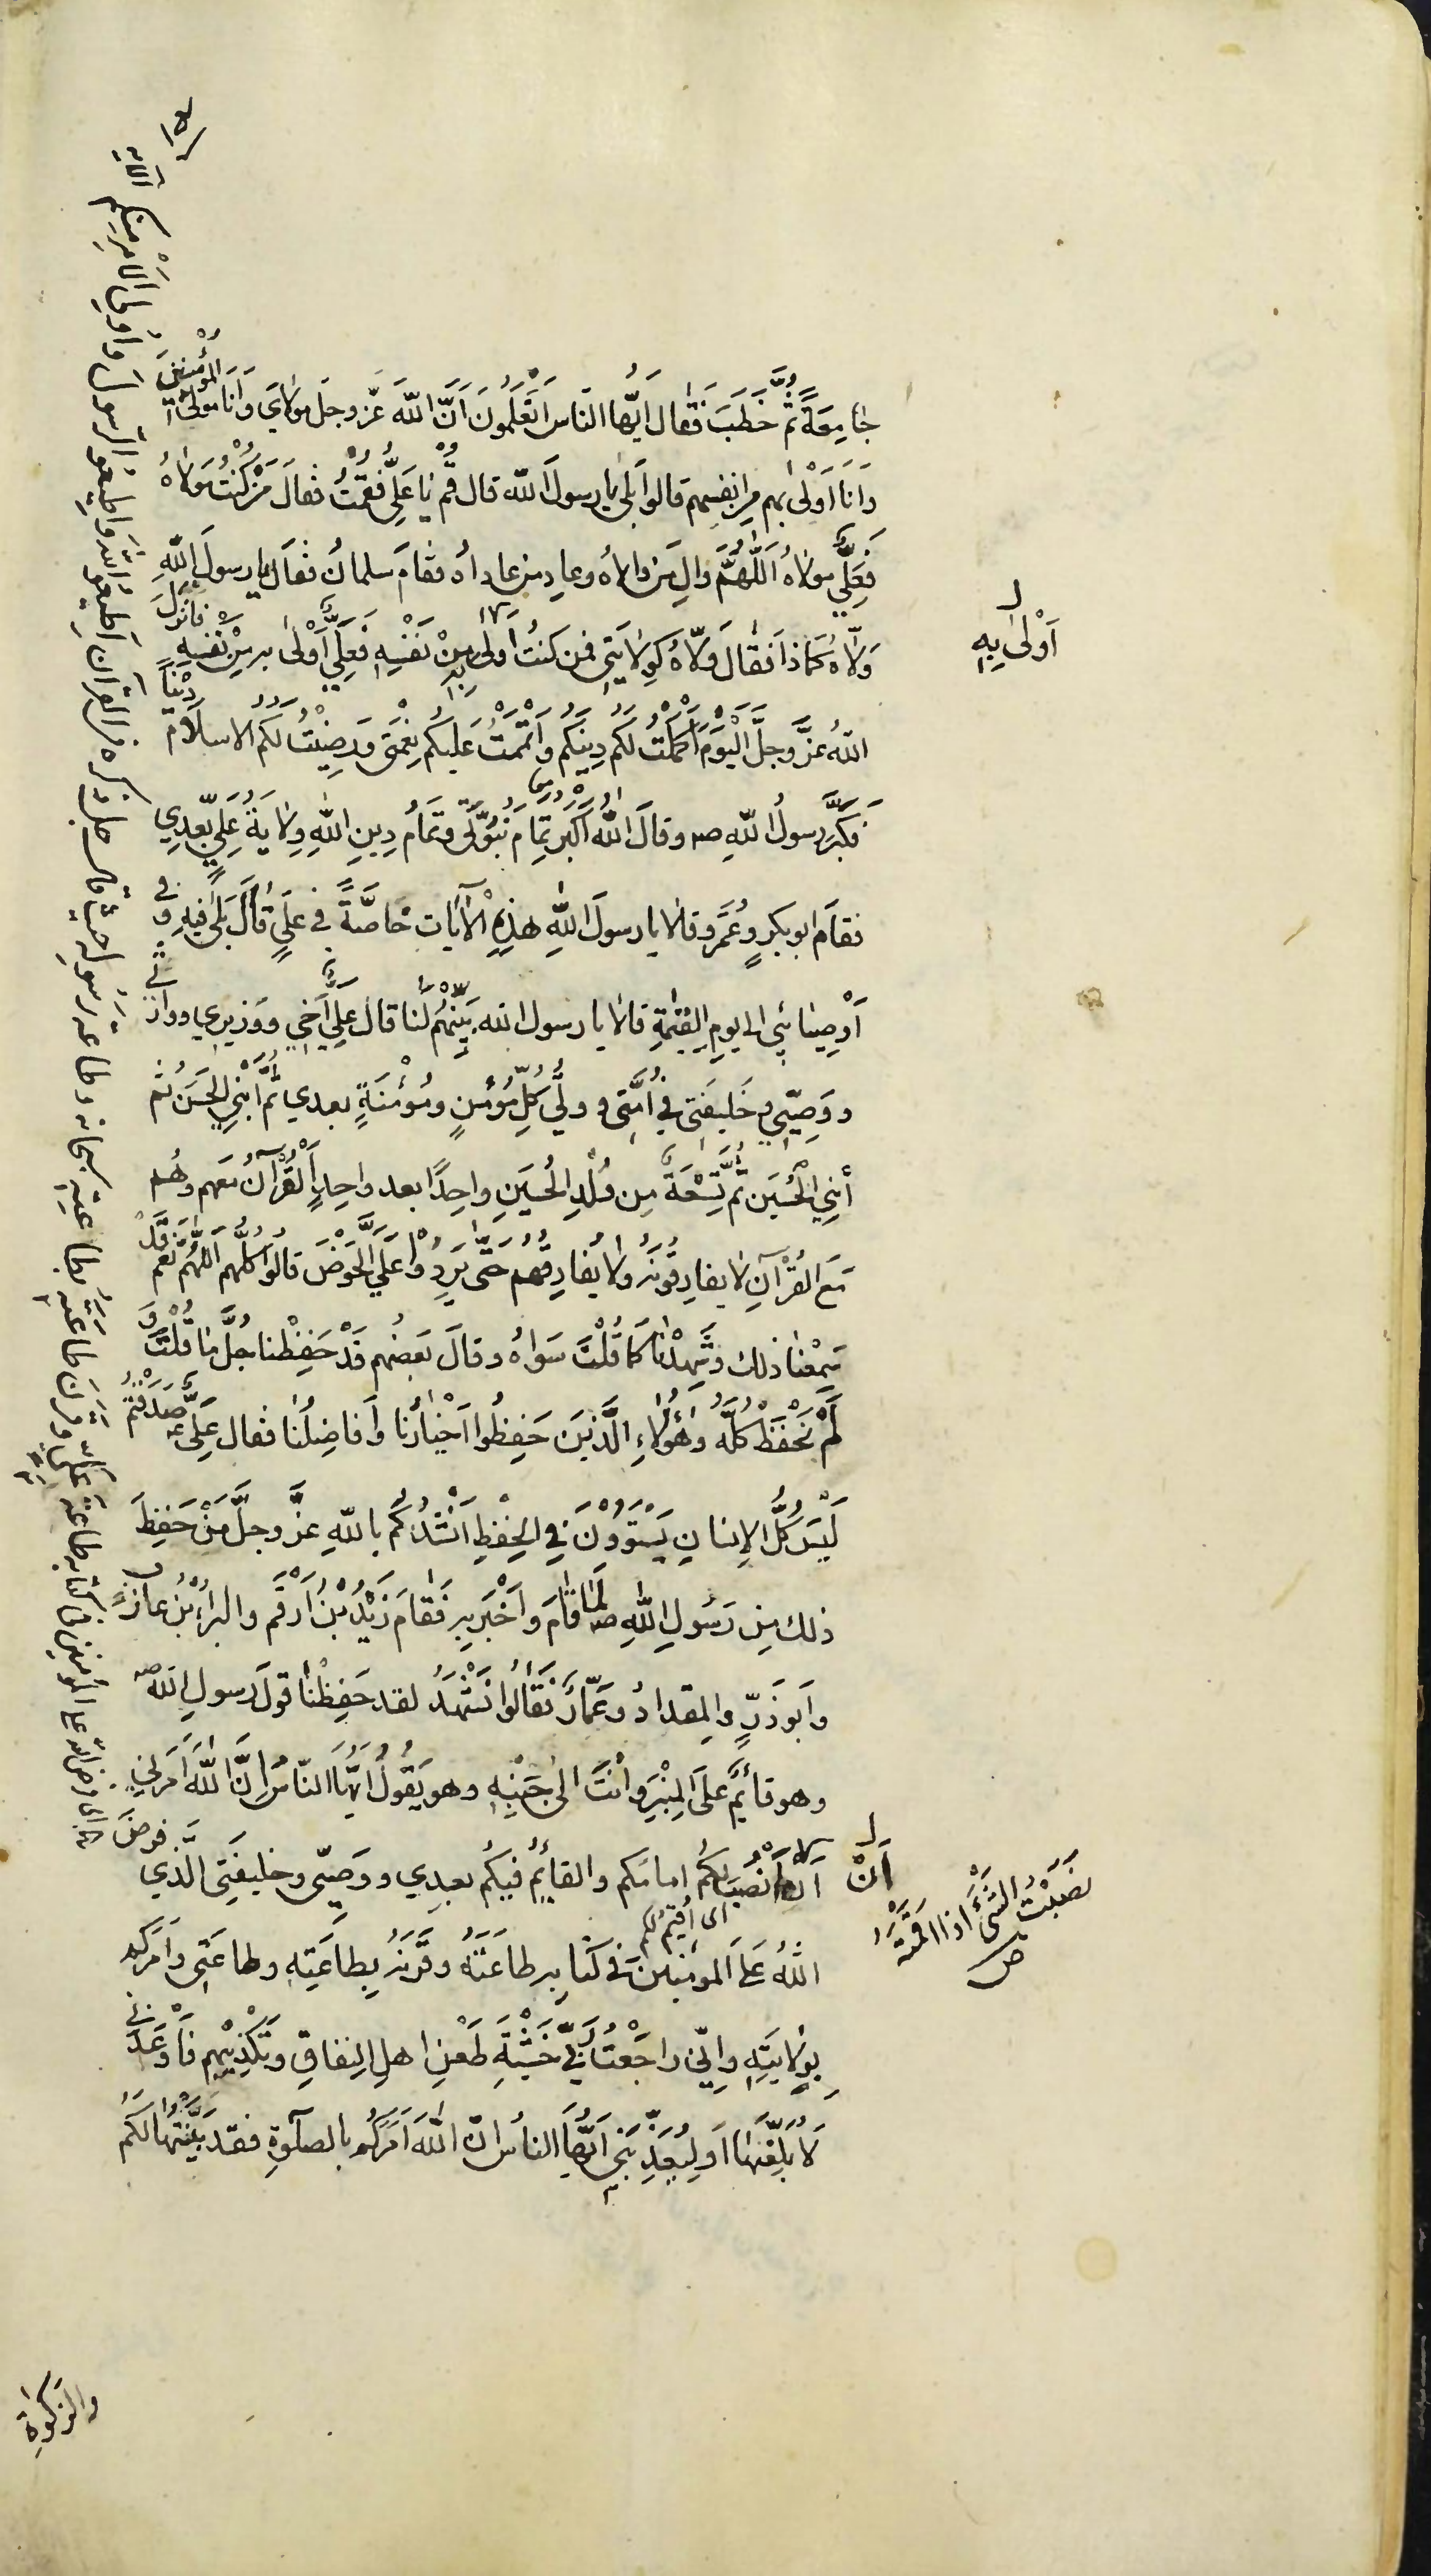 ١٥١
جامِعَةً ثُمَّ خَطَبَ فَقال اَيُّها النّاسَ اَتَعْلَمُونَ اَنَّ اللّهَ عَزّ وجَل مولايَ وَاَنَا مَولىَ المُؤْمِنينَ
وَاَنا اَوْلىٰ بهم مِن انفسِهم قالوا بَلىٰ يا رسولَ الله قال قُمْ يا عَليُّ فَقُمْتُ فقالَ مَنْ كُنْتُ مَولاهُ
فَعَلِيٌّ مَولاهُ اَللّٰهُمَّ والِ مَن والاهُ وعادِ من عاداهُ فقامَ سلمانُ فقالَ يا رسولَ اللّهِ
وَلّاهُ كَماذا فَقالَ وَلّاهُ كَوِلايَتي فمن كنتُ أولىٰ بِهِ مِنْ نَفْسِهِ فَعَلِيٌّ اَوْلىٰ به مِنْ نَفْسِهِ فانزلَ
اللّهُ عزَّ وجلَّ الْيَوْمَ اَكْمَلْتُ لكُم دِينَكُم واَتْمَمْتُ عَليكُم نِعْمَتي وَرَضِيْتُ لَكُم الاسلامَ دِيْناً
فكَبَّرَ رسولُ اللّهِ صه وقالَ اللّهُ اَكْبَر تمامُ نبُوَّتي وتمامُ دِينِ اللهِ وِلايَةُ عَلِيٍّ بَعدِي
فقامَ ابوبكرٍ وعُمَرُ وقالا يا رسولَ اللّهِ هذِهِ الْآيات خاصَّةً في عليٍّ قالَ بَلىٰ فيهِ و في
اَوْصِيائي الى يومِ القِيٰمةِ قالا يا رسول الله بَيِّنْهُمْ لَنا قال عَلِيٌّ اَخي ووَزيري ووارثي
ووَصِيّي وخَليفَتي في اُمَّتي و وليُّ كُلِّ مُؤْمنٍ ومُؤْمنَةٍ بعدي ثُمَّ ابْني الحَسَن ثم
ابْنِي الْحُسَين ثُمَّ تِسْعَةٌ مِن وُلْدِ الحُسَينِ واحِدًا بعد واحِدٍ اَلْقُرْآنُ مَعهم وهُم
مَع القُرْآنِ لا يفارِقُونَهُ ولا يُفارِقُهُم حَتّىٰ يَرِدُوا عَلَيَّ الحَوْضَ قالُوا كلُّهُم اَللّٰهُمَّ نَعَم قَدْ
سَمِعْنا ذلك وشَهِدْنا كما قُلْتَ سَواءً وقالَ بَعضُهم قَدْ حَفِظْنا جُلَّ ما قُلْتَ وَ
لَمْ نَحْفَظْ كُلَّهُ وهٰؤُلاءِ الَّذينَ حَفِظُوا اَخْيارُنا وَاَفاضِلُنا فقال عَلِيٌّ عه صَدَقْتُمْ
لَيْسَ كُلُّ الإنسانِ يَسْتَوُونَ في الحِفْظِ اَنْشُدُكُم باللّهِ عزَّ وجلَّ مَنْ حَفِظَ
ذلك مِن رَسُولِ اللّهِ صه لَمّا قامَ واَخْبَر به فَقامَ زَيْدُ بْنُ اَرْقَم والبَراءُ بْنُ عازِبٍ
واَبوذَرٍّ والمِقدادُ وعَمّارُ فَقالُوا نَشْهَدُ لقد حَفِظْنا قولَ رسولِ اللّه صه
وهو قائمٌ عَلَى المِنْبَرِ واَنْتَ الىٰ جَنْبِهِ وهو يَقُولُ اَيُّهَا النّاسُ اِنَّ اللّهَ اَمَرَني
اَنْصِبَ لكُم امامَكم والقائمَ فيكُم بعدِي ووَصِيّي وخليفَتي الَّذي فَرضَ
اى اُقيم لكم
اللّهُ عَلَى المؤمنينَ في كتابِهِ طاعَتَهُ وقَرَنَهُ بِطاعَتِهِ وطاعَتي واَمَركُم
بوِلايَتِهِ واِنّي راجَعْتُ رَبّي خَشْيَةَ طَعْنِ اهلِ النِفاقِ وتَكْذِيبِهِم فَاَوعَدَني
لَاُبَلِّغَنَّها اَو لِيُعَذِّبَني اَيُّها الناسُ انّ اللّهَ اَمَرَكُم بالصلٰوةِ فقد بَيَّنْتُها لَكُم
والزكوة
اَوْلىٰ بِهِ
اَنْ
نَصَبْتُ الشَّئَ اذا اقمتَهُ
ص